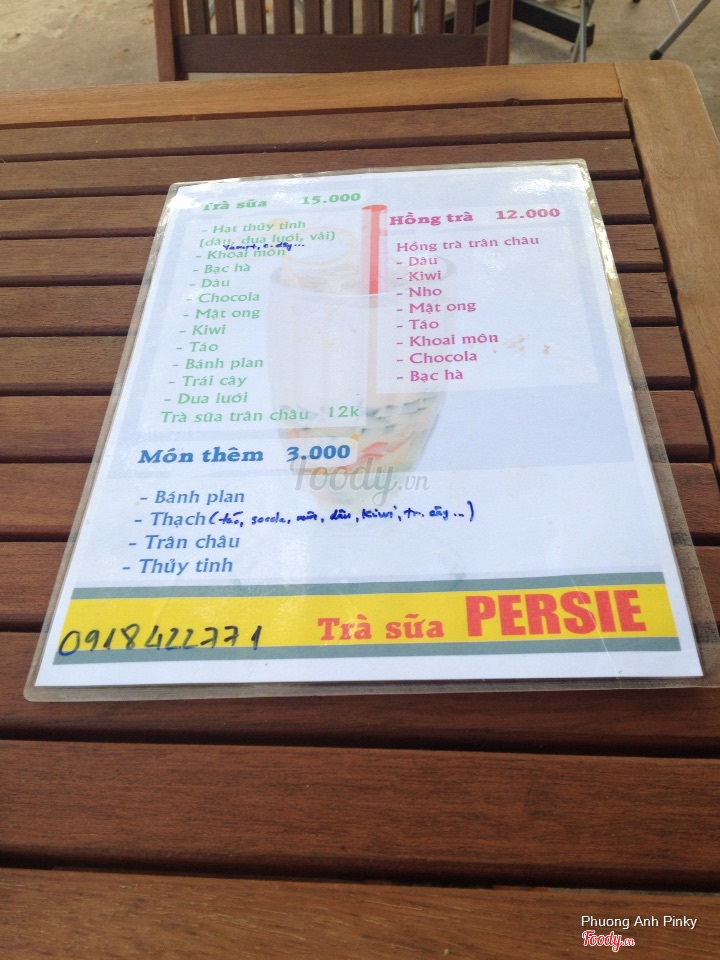 Trà sữa 15.000
- Hạt thủy tinh
(dâu, dưa lưới, vải)
- Khoai môn
- Bạc hà
- Dâu
- Chocola
- Mật ong
- Kiwi
- Táo
- Bánh plan
- Trái cây
- Dưa lưới
Trà sữa trân châu 12k
Hồng trà 12.000
Hồng trà trân châu
- Dâu
- Kiwi
- Nho
- Mật ong
- Táo
- Khoai môn
- Chocola
- Bạc hà
Món thêm 3.000
- Bánh plan
- Thạch (táo, socola, dâu, kiwi, ...)
- Trân châu
- Thủy tinh
0918422771 Trà sữa PERSIE
Foody.vn
Phuong Anh Pinky
Foody.vn